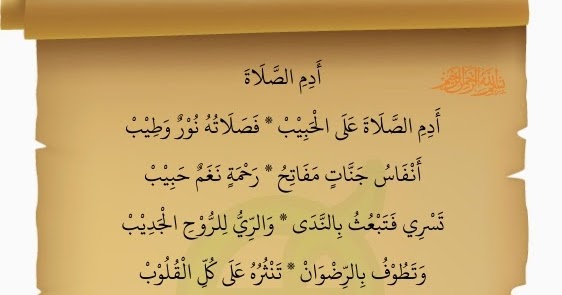 أَدِمِ الصَّلَاةَ
أَدِمِ الصَّلَاةَ عَلَى الْحَبِيْبْ * فَصَلَاتُهُ نُوْرٌ وَطِيْبْ
أَنْفَاسُ جَنَّاتٍ مَفَاتِحُ * رَحْمَةٍ نَغَمٌ حَبِيْبْ
تَسْرِي فَتَبْعُثُ بِالنَّدَى * وَالرِّيُّ لِلرُّوْحِ الْجَدِيْبْ
وَتَطُوْفُ بِالرِّضْوَانْ * تَنْثُرُهُ عَلَى كُلِّ الْقُلُوْبْ